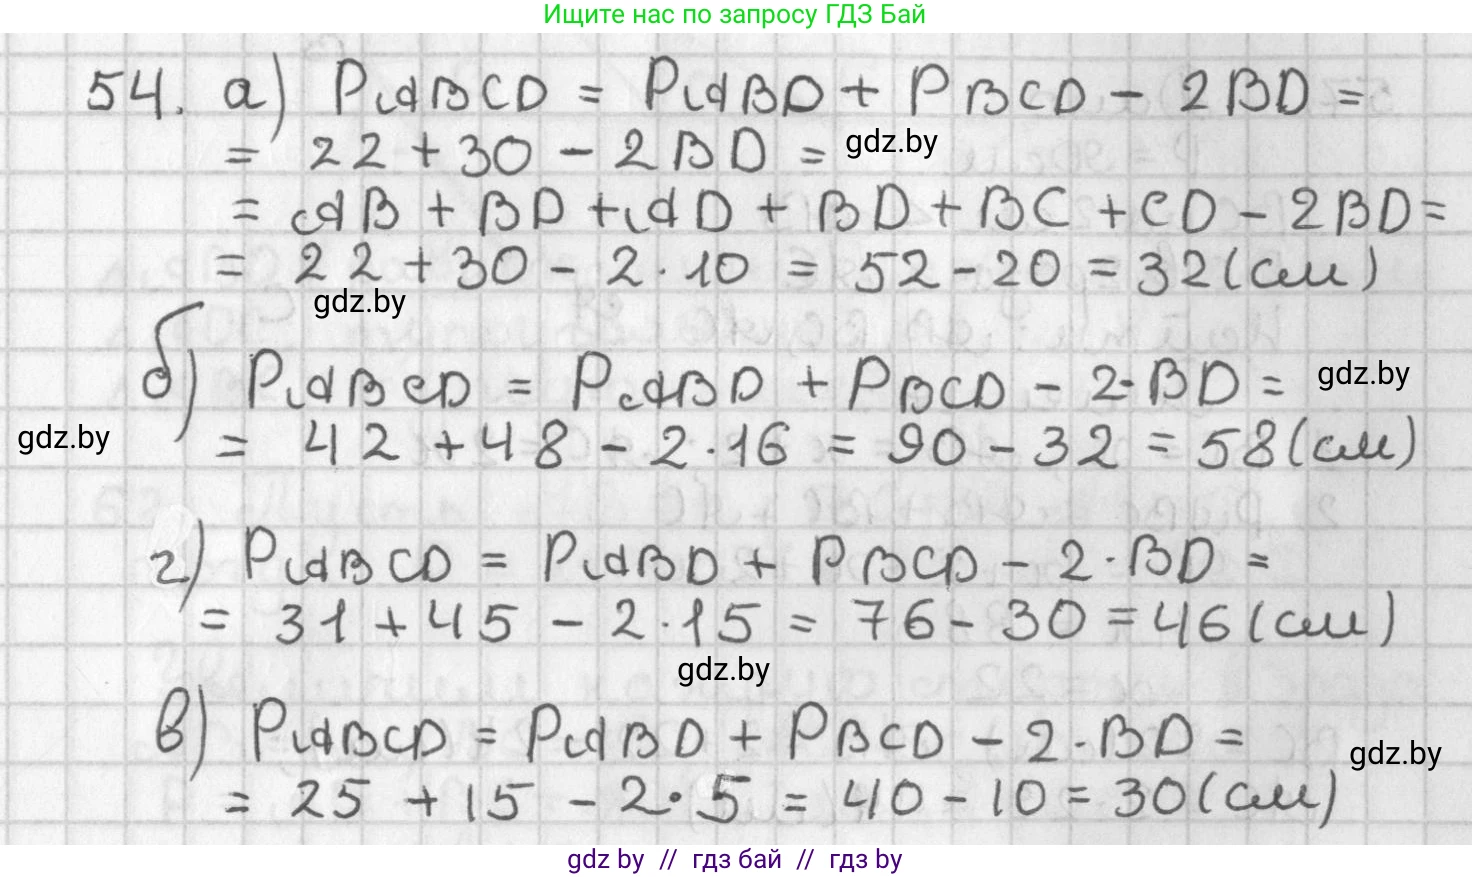 Ищите нас по запросу ГДЗ Бай
54. а) P ABCD = P ABD + P BCD - 2BD =
= 22 + 30 - 2BD = gdz.by
= AB + BD + AD + BD + BC + CD - 2BD =
= 22 + 30 - 2·10 = 52 - 20 = 32 (см)
gdz.by
б) P ABCD = P ABD + P BCD - 2·BD = gdz.by
gdz.by = 42 + 48 - 2·16 = 90 - 32 = 58 (см)
г) P ABCD = P ABD + P BCD - 2·BD =
= 31 + 45 - 2·15 = 76 - 30 = 46 (см)
gdz.by
в) P ABCD = P ABD + P BCD - 2·BD = gdz.by
= 25 + 15 - 2·5 = 40 - 10 = 30 (см)
gdz by // гдз бай // гдз by